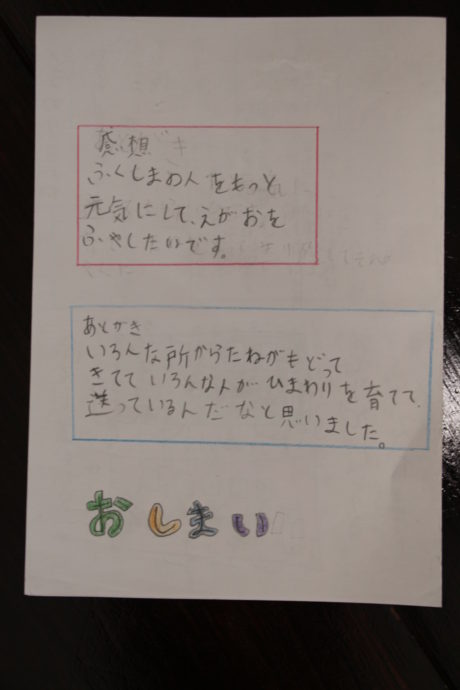 感想
ふくしまの人をもっと
元気にして、えがおを
ふやしたいです。
あとがき
いろんな所からたねがもどって
きてていろんな人がひまわりを育てて、
送っているんだなと思いました。
おしまい